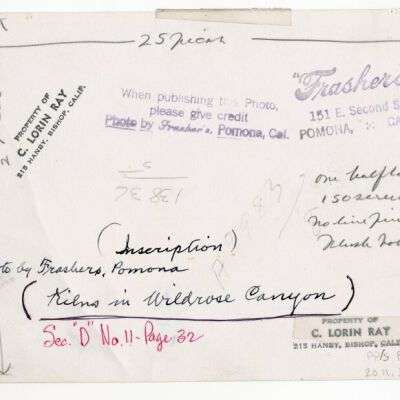 25 picas
PROPERTY OF
C. LORIN RAY
215 HANBY, BISHOP, CALIF.
When publishing this Photo,
please give credit
Photo by Frasher's, Pomona, Cal.
"Frashers
151 E. Second S
POMONA, CA
one halfto
150 screen
No line
(Inscription)
to by Frashers, Pomona
(Kilns in Wildrose Canyon)
Sec. "D" No. 11 - Page 32
PROPERTY OF
C. LORIN RAY
215 HANBY, BISHOP, CALIF